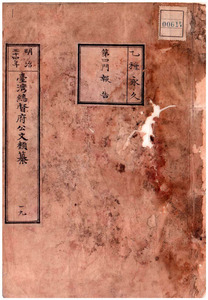 乙種永久
第四門 報告
明治
三十四年
臺灣總督府公文類纂
一九